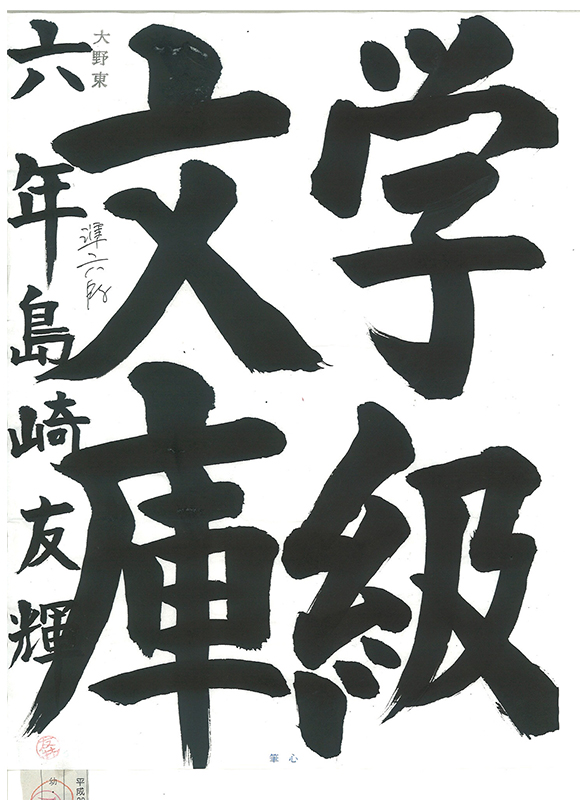 学級
文庫
大野東
六年島崎友輝
準六段
心筆
平成
幼・